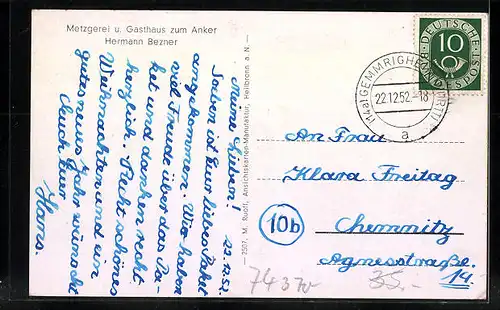 Metzgerei u. Gasthaus zum Anker
Hermann Bezner
23.12.52.
Meine Lieben!
Soeben ist Euer liebes Paket
angekommen. Wir haben
viel Freude über das Pa-
ket und danken recht
herzlich. Recht schönes
Weihnachten und ein
gutes neues Jahr wünscht
Euch Euer
Hans.
2507, M. Rudli, Ansichtskarten-Manufaktur, Heilbronn a. N.
DEUTSCHE BUNDESPOST
10
(14a) GEMMRIGHEIM
22.12.52.-18
a
An Frau
Klara Freitag
10b
Chemnitz
Agnesstraße
14.
7437
35.-